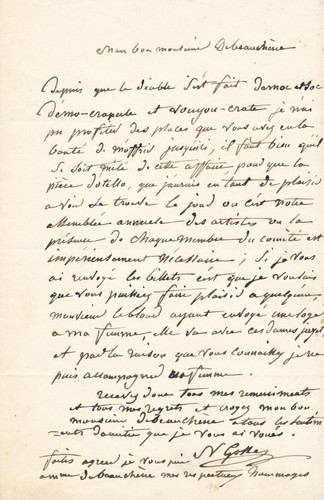 Mon bon monsieur Debeauchène
depuis que le diable s'est fait démoc et soc
démo-crapule et voyou-crate je n'ai
pu profiter des places que vous avez eu la
bonté de m'offrir jusqu'ici, il faut bien qu'il
se soit mêlé de cette affaire pour que la
pièce d'otello, que j'aurais eu tant de plaisir
a voir se trouve le jour ou c'est notre
assemblée annuelle des artistes ou la
présence de chaque membre du comité est
impérieusement nécessaire; Si je vous
ai renvoyé les billets c'est que je voulais
que vous puissiez faire plaisir a quelqu'un,
monsieur le baud ayant envoyé une loge
a ma femme, elle va avec ces dames
et par la raison que vous connaissez je ne
puis accompagner ma femme.
recevez donc tous mes remerciments
et tous mes regrets et croyez mon bon
monsieur debeauchène a tous les sentim
-ents d'amitié que je vous ai voués.
faites agréer je vous prie
a mme debeauchène mes respectueux hommages